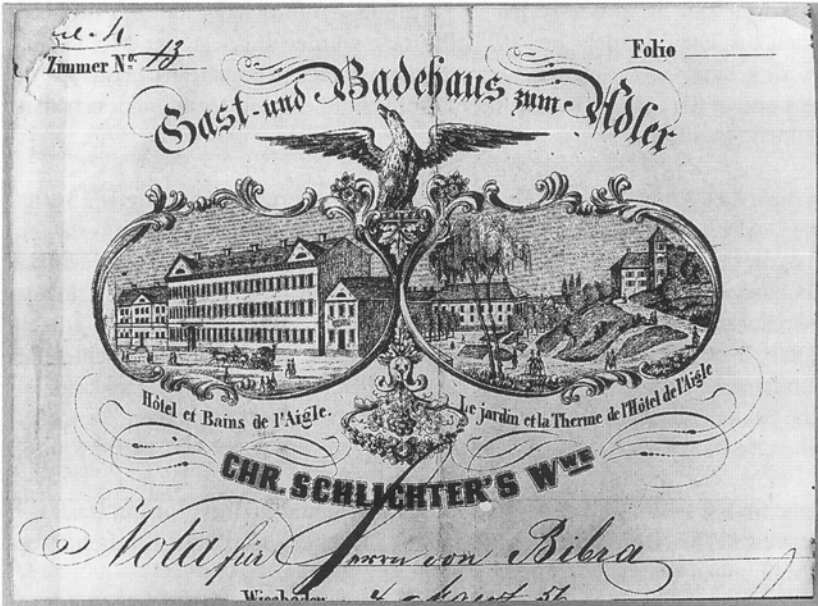 Zimmer No. 13
Folio
Gast- und Badehaus zum Adler
Hôtel et Bains de l'Aigle.
Le jardin et la Therme de l'Hôtel de l'Aigle
CHR. SCHLICHTER'S WWE
Nota für Herrn von Bibra
Wiesbaden 4 August 56